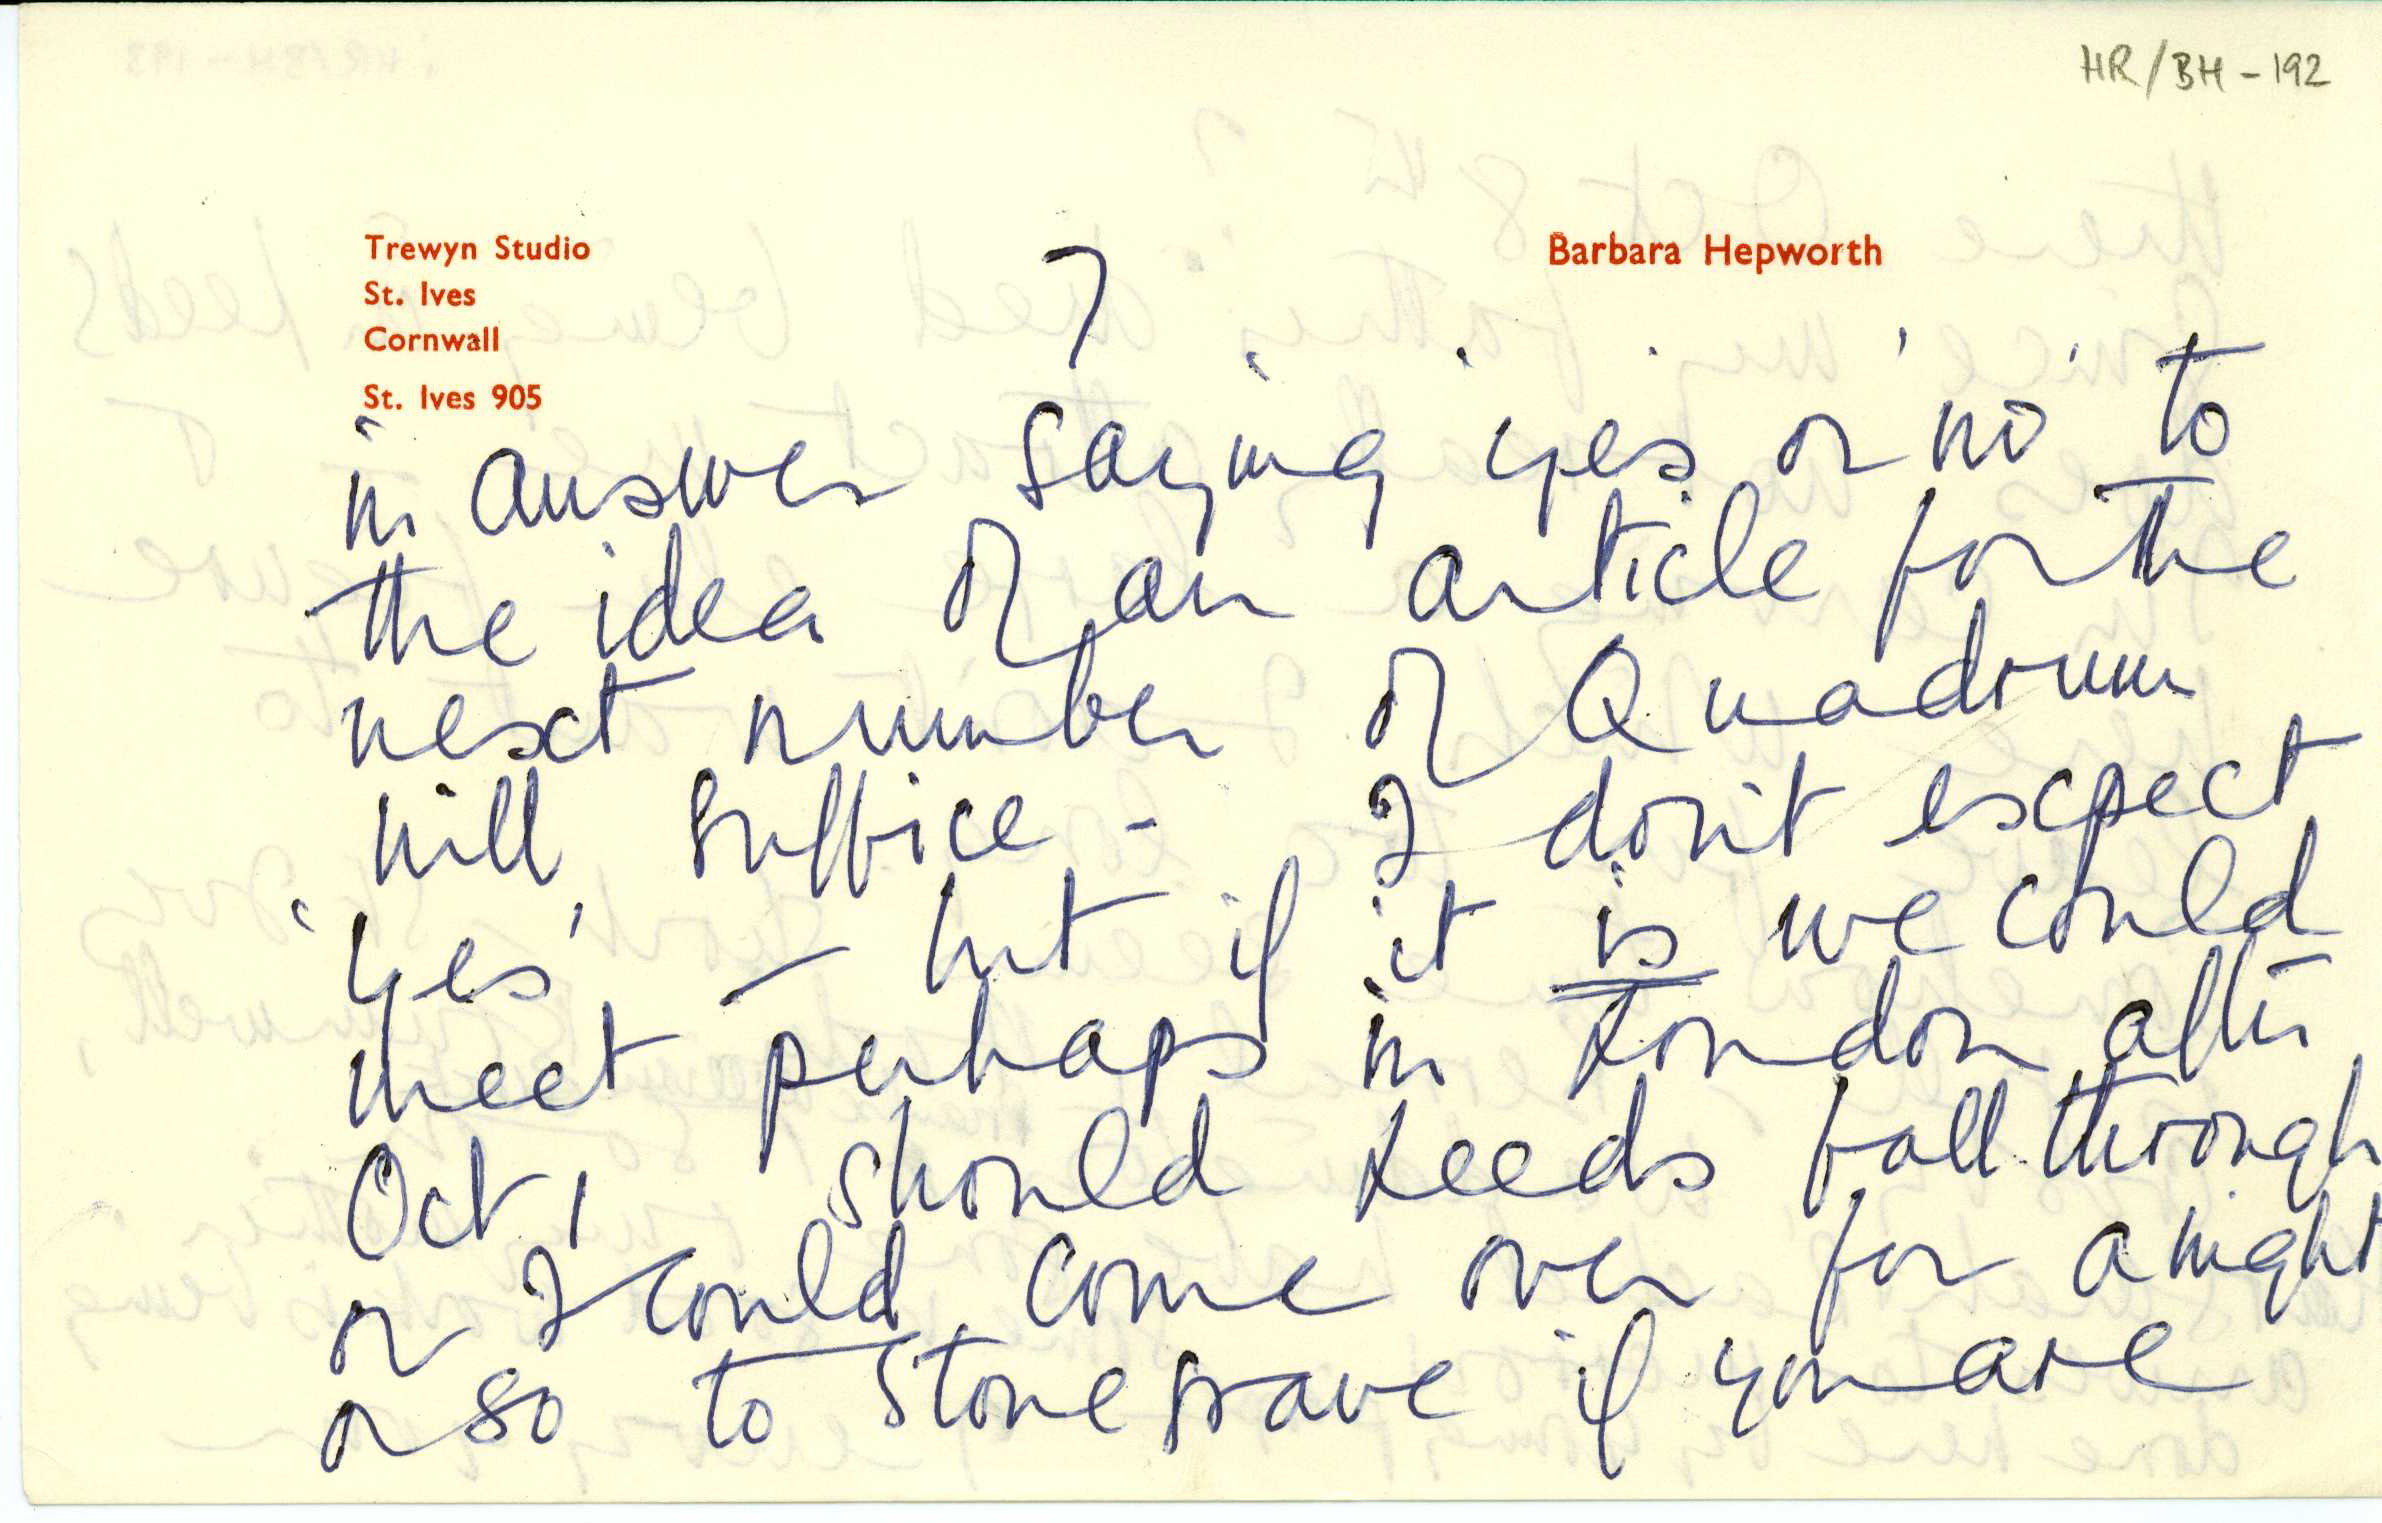 HR/BH - 192
Trewyn Studio
St. Ives
Cornwall
St. Ives 905
Barbara Hepworth
7
in answer saying 'yes' or 'no' to
the idea of an article for the
next number of Quadrum
will suffice - I don't expect
'yes' - but if it is we could
meet perhaps in London after
Oct 1 should Leeds fall through
or I could come over for a night
or so to Stonegrave if you are